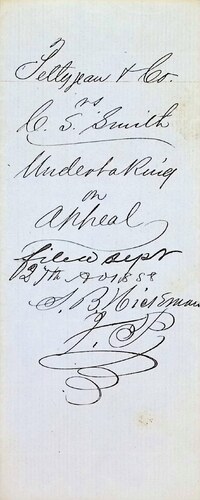 Pettyjean & Co.
vs
C. S. Smith
Undertaking
on
Appeal
filed Sept
27th AD 1858
S. B. Hickman
J. P.